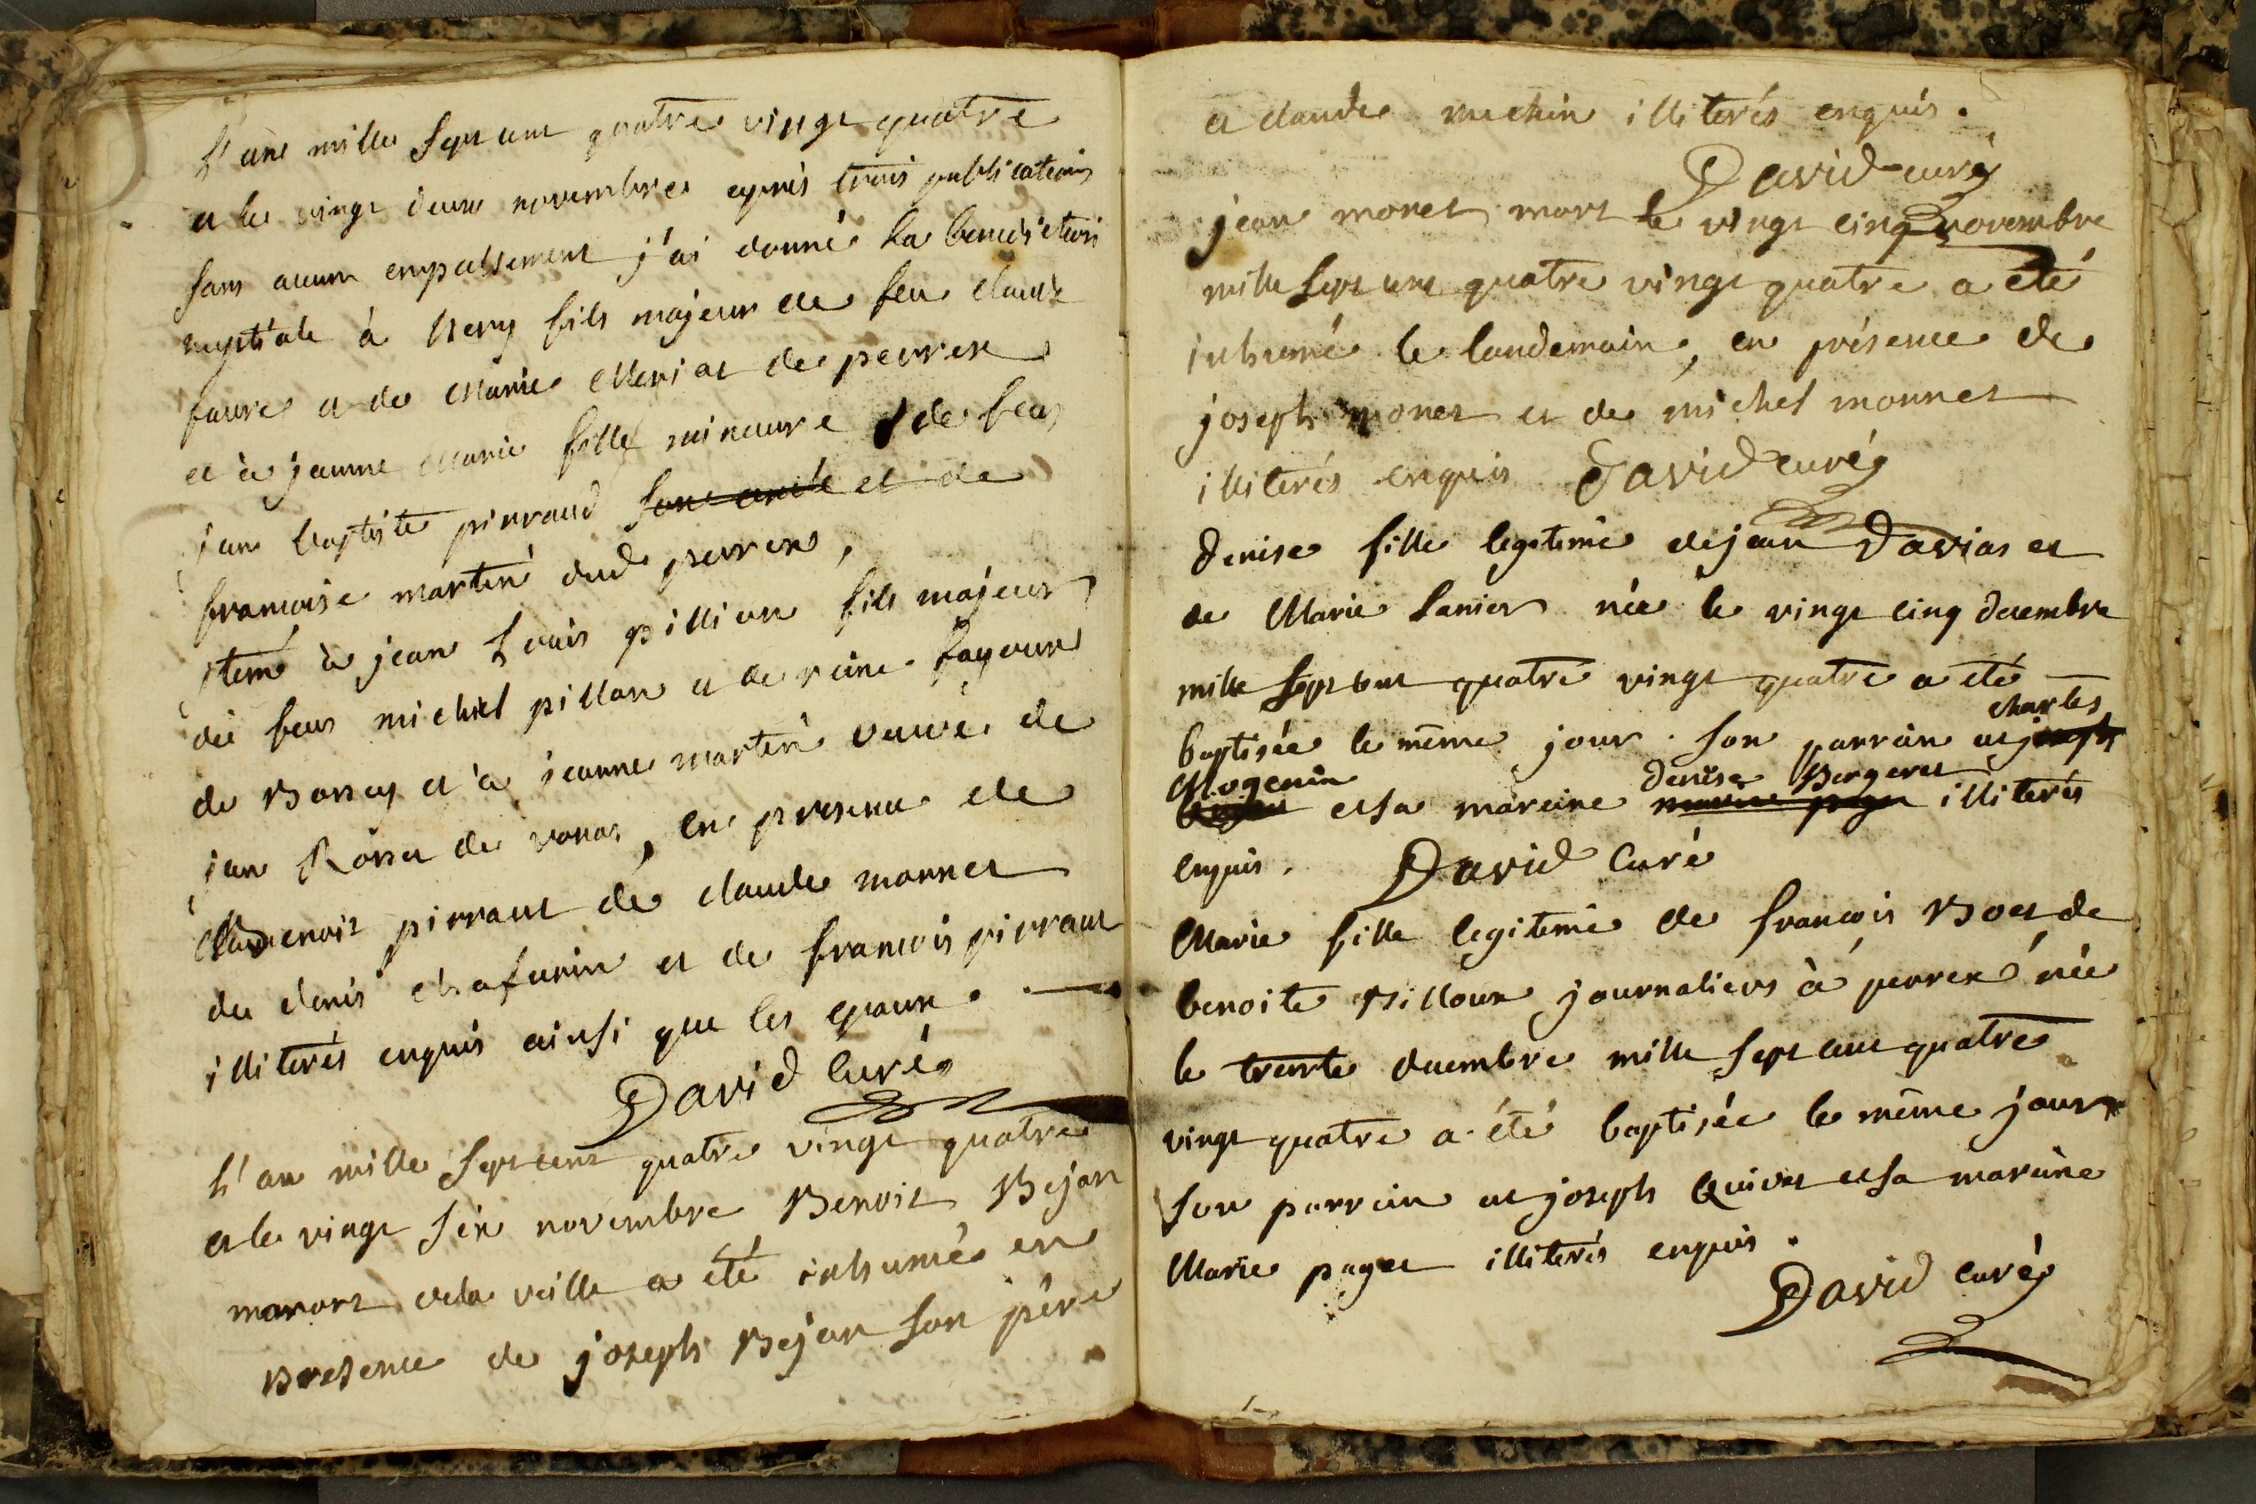 L'ane mille sept cent quatre vingt quatre
et le vingt deux novembre après trois publications
sans aucun empaissement j'ai donné la benediction
nuptiale à hery fils majeur de feu claude
favre et de Marie Meriat de perrex
et à jeanne Marie fille mineure de feu
jean baptiste pirraud et de
francoise martin dud perrex,
item à jean Louis pillion fils majeur
de feus michel pillon et de reine
de Bossey et à jeanne martin veuve de
jean Rosset de vonas, en presence de
benoit pirraut de claude monnet
de denis chafurin et de francois pirraut
illiterés enquis ainsi que les epoux.
David Curé
L'an mille sept cent quatre vingt quatre
et le vingt six novembre Benoit Bejan
mort de la veille a été inhumé en
presence de joseph Bejan son père
et claude michin illiterés enquis.
David curé
jean monet mort le vingt cinq novembre
mille sept cent quatre vingt quatre a été
inhumé le landemain, en présence de
joseph monet et de michel monnet
illiterés enquis David curé
Denise fille legetime de jean Davias et
de Marie Lanier née le vingt cinq decembre
mille sept cent quatre vingt quatre a été
baptisée le même jour. son parrain et charles
Mogenin et sa mareine denise Bergeret illiterés
enquis. David Curé
Marie fille legiteme de francois Boet de
benoite Billoux journaliers à perrex née
le trente decembre mille sept cent quatre
vingt quatre a été baptisée le même jour
son parrein et joseph Quivet et sa mareine
Marie paget illiterés enquis.
David curé